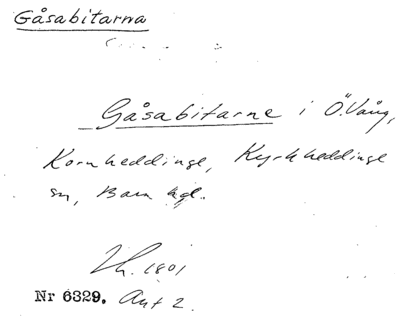 Gåsabitarna
Gåsabitarne i Ö. Vång,
Kornheddinge, Kyrkheddinge
sn, Bara hd.
1801
Nr 6329. Akt 2.